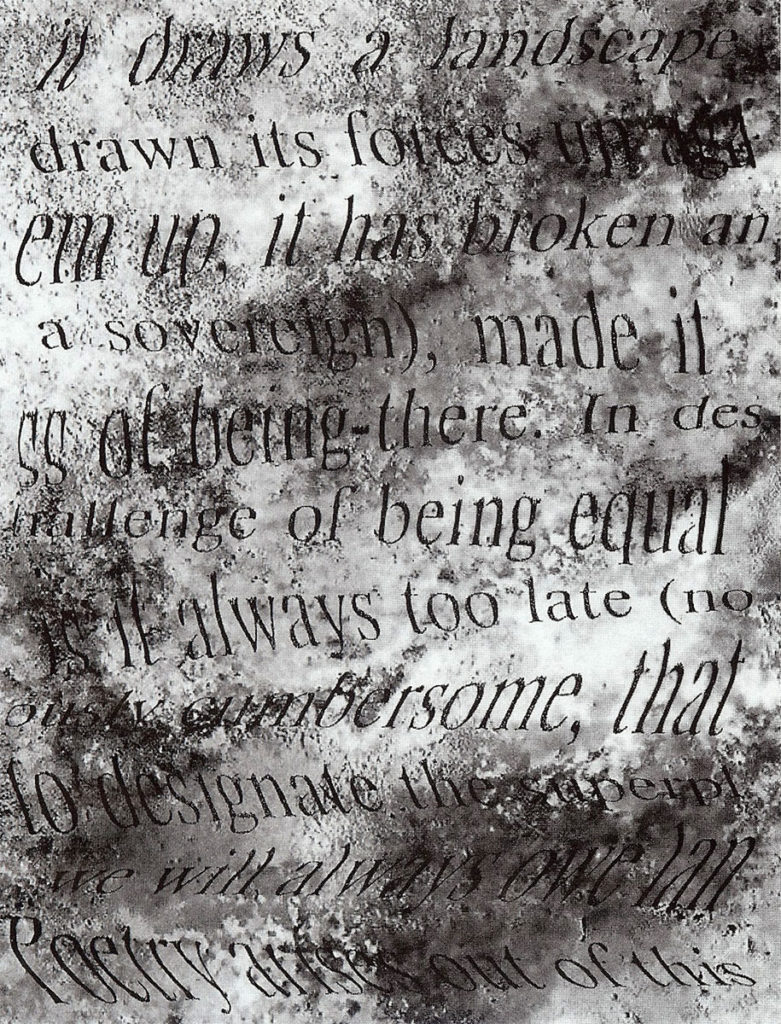 it draws a landscape
drawn its forces up and
em up, it has broken an
a sovereign), made it
ss of being-there. In des
hallenge of being equal
is it always too late (no
ously cumbersome, that
to designate the superpl
we will always owe lan
Poetry arises out of this